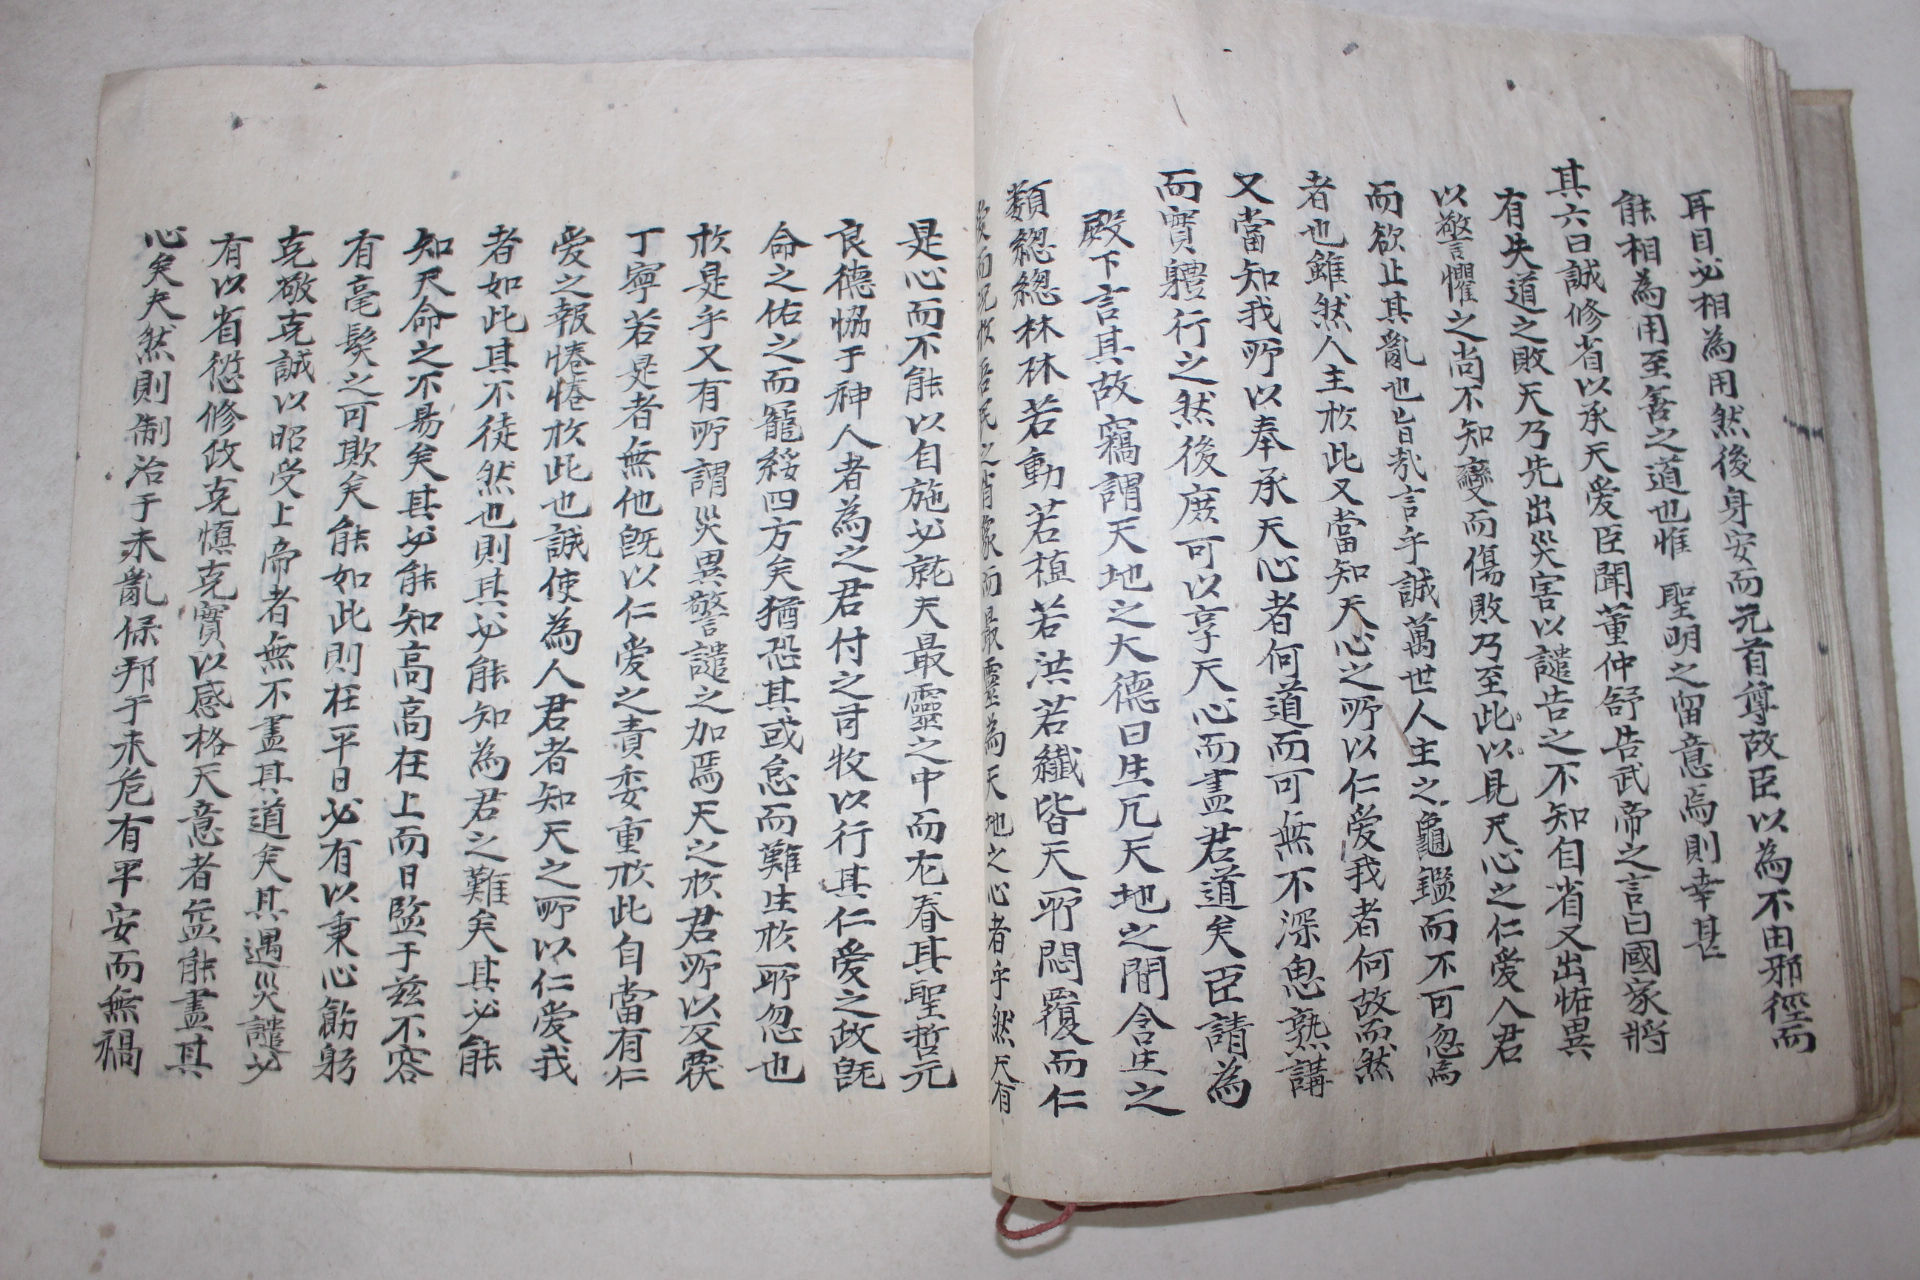 耳目必相為用然後身安而元首尊故臣以為不由邪徑而
能相為用至善之道也惟 聖明之留意焉則幸甚
其六曰誠修省以承天愛臣聞董仲舒告武帝之言曰國家將
有失道之敗天乃先出災害以譴告之不知自省又出恠異
以警懼之尚不知變而傷敗乃至此以見天心之仁愛人君
而欲止其亂也旨哉言乎誠萬世人主之龜鑑而不可忽焉
者也雖然人主於此又當知天心之所以仁愛我者何故而然
又當知我所以奉承天心者何道而可無不深思熟講
而實體行之然後庶可以享天心而盡君道矣臣請為
殿下言其故竊謂天地之大德曰生凡天地之間含生之
類緫緫林林若動若植若洪若纖皆天所悶覆而仁
愛而況於吾民之肖像而最靈為天地之心者乎然天有
是心而不能以自施必就夫最靈之中而尤眷其聖哲元
良德恊于神人者為之君付之司牧以行其仁愛之政旣
命之佑之而寵綏四方矣猶恐其或怠而難生於所忽也
於是乎又有所謂災異警譴之加焉天之於君所以反覆
丁寧若是者無他旣以仁愛之責委重於此自當有仁
愛之報惓惓於此也誠使為人君者知天之所以仁愛我
者如此其不徒然也則其必能知為君之難矣其必能
知天命之不易矣其必能知高高在上而日監于玆不容
有毫髮之可欺矣能如此則在平日必有以秉心飭躬
克敬克誠以昭受上帝者無不盡其道矣其遇災譴必
有以省愆修政克愼克實以感格天意者益能盡其
心矣夫然則制治于未亂保邦于未危有平安而無禍